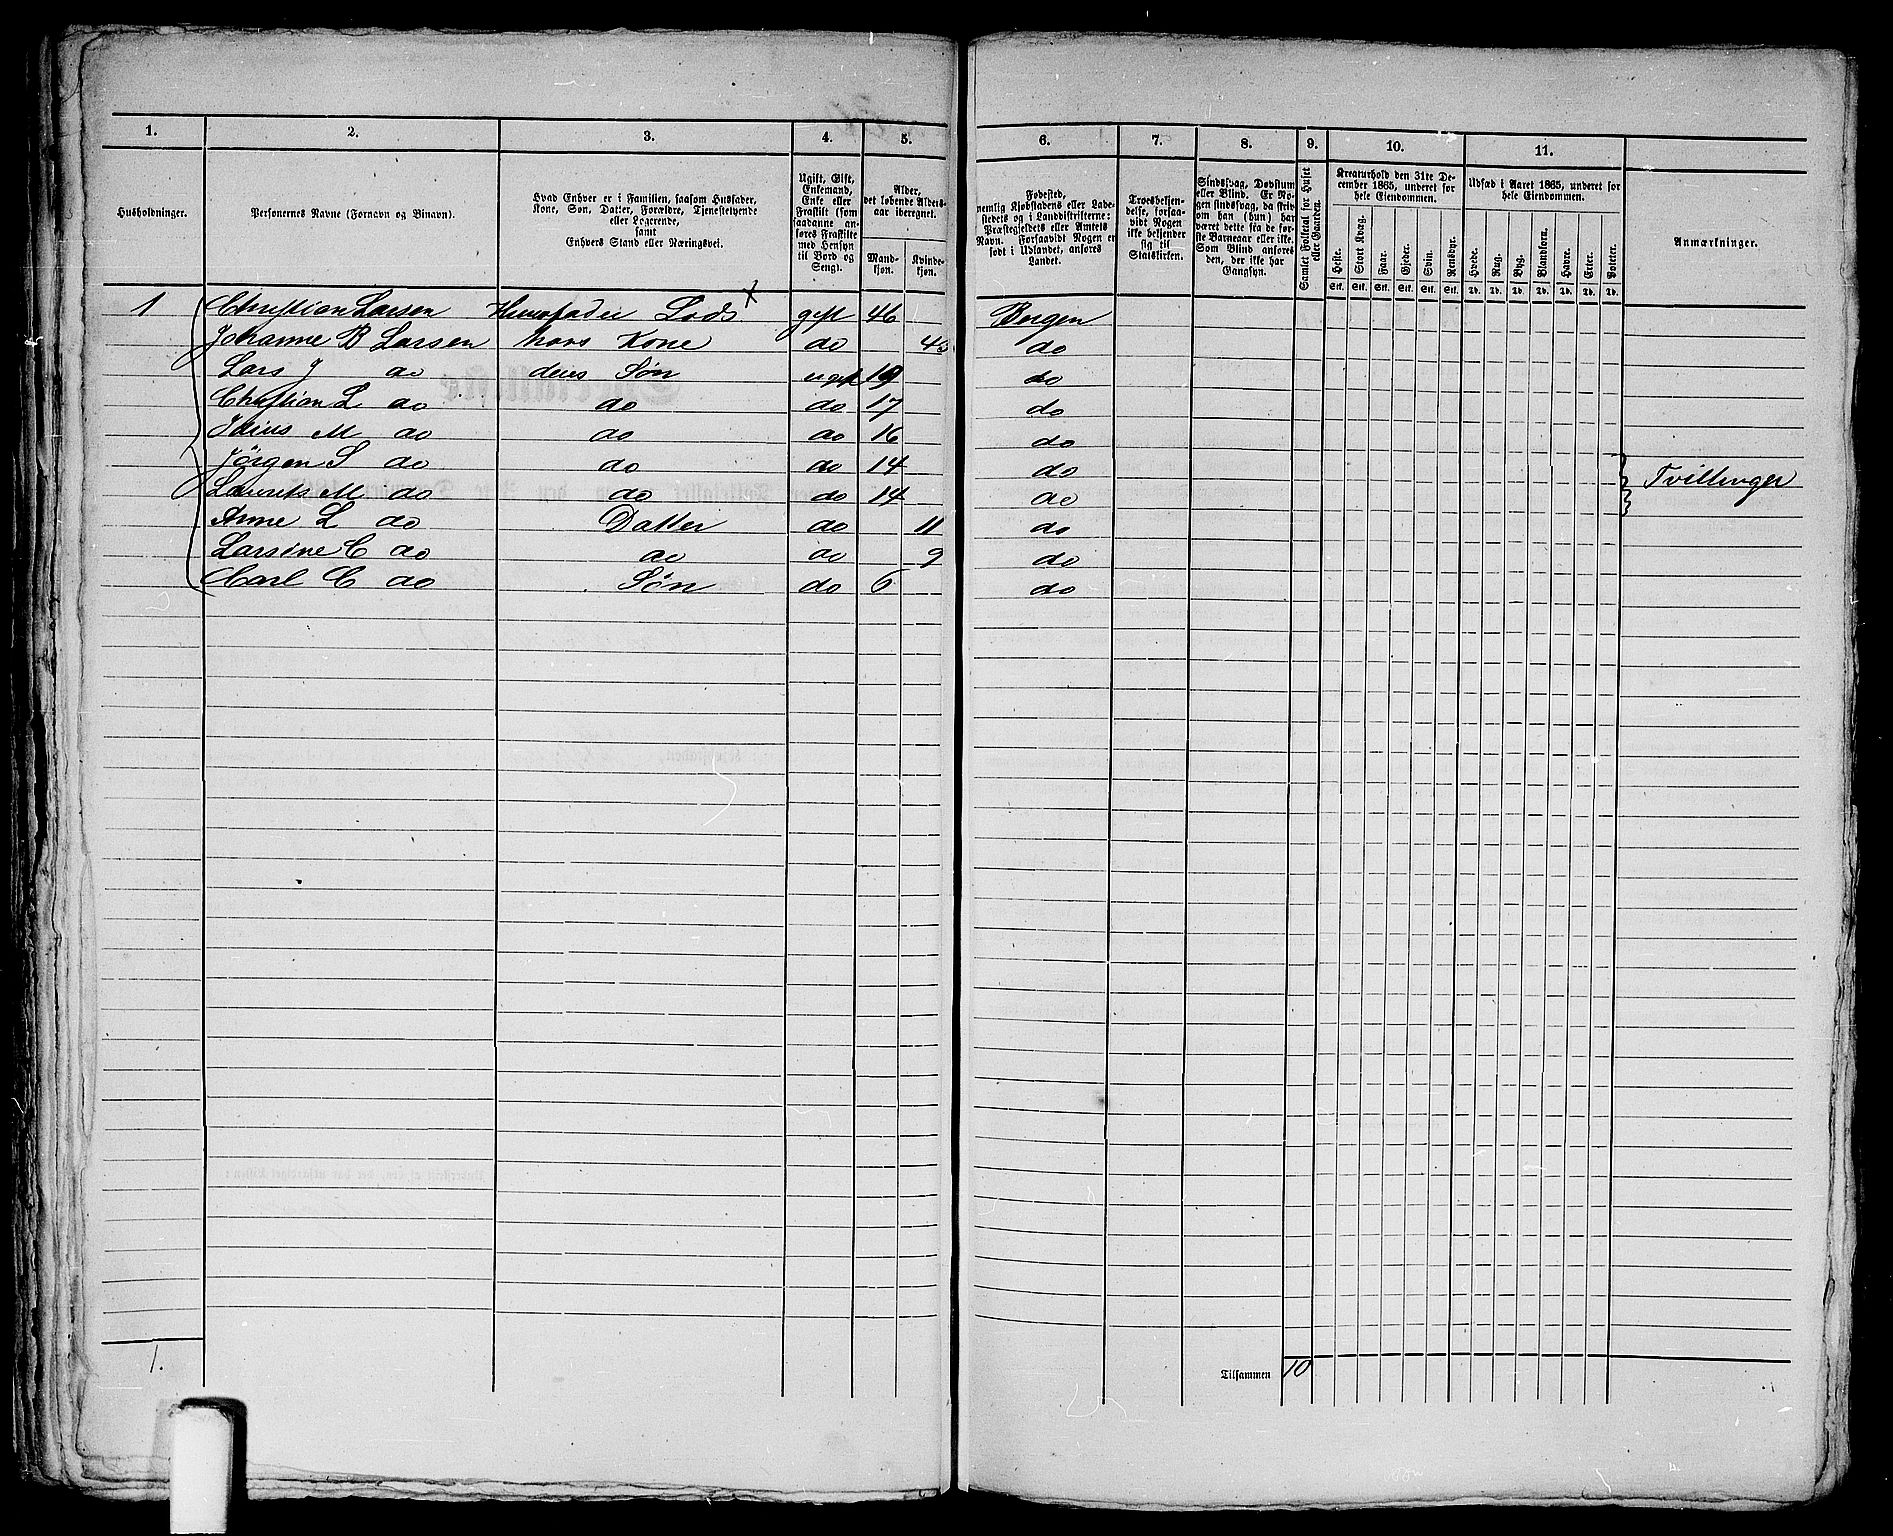 1. 2. 3. 4. 5. 6. 7. 8. 9. 10. 11.
Husholdninger.
Personernes Navne (Fornavn og Binavn).
Hvad Enhver er i Familien, saasom Husfader,
Kone, Søn, Datter, Forældre, Tjenestetyende
eller Logerende,
samt
Enhvers Stand eller Næringsvei.
Ugift, Gift,
Enkemand,
Enke eller
Fraskilt (som
saadanne an-
føres Fraskilte
med Hensyn
til Bord og
Seng).
Alder,
det løbende Alders-
aar iberegnet.
Mand-
kjøn.
Kvinde-
kjøn.
Fødested,
nemlig Kjøbstadens eller Lade-
stedets og i Landdistrikterne:
Præstegjeldets eller Amtets
Navn. Forsaavidt Nogen er
født i Udlandet, anføres
Landet.
Troesbekjen-
delse, forsaa-
vidt Nogen
ikke bekjender
sig til
Statskirken.
Sindssvag, Døvstum
eller Blind. Er No-
gen sindssvag, da skriv
om han (hun) har
været dette fra de før-
ste Barneaar eller ikke.
Som Blind anføres
den, der ikke har
Gangsyn.
Samlet Folketal for Huset
eller Gaarden.
Kreaturhold den 31te De-
cember 1865, underet for
hele Eiendommen.
Heste. Stort Kvæg. Faar. Gjeder. Svin. Rensdyr.
Stk. Stk. Stk. Stk. Stk. Stk.
Udsæd i Aaret 1865, underet for
hele Eiendommen.
Hvede. Rug. Byg. Blandkorn. Havre. Erter. Poteter.
Td. Td. Td. Td. Td. Td. Td.
Anmærkninger.
1 Christian Larsen Huusfader Lods x gift 46 Bergen
Johanne B Larsen hans Kone do do
Lars J do deres Søn ugift 19 do
Christian L do do do 17 do
M do do do 16 do
Jörgen S do do do 14 do
Laurits M do do do 14 do
Tvillinger
Anne L do Datter do 11 do
Larsine C do do do 9 do
Carl C do Søn do 6 do
1.
Tilsammen 10